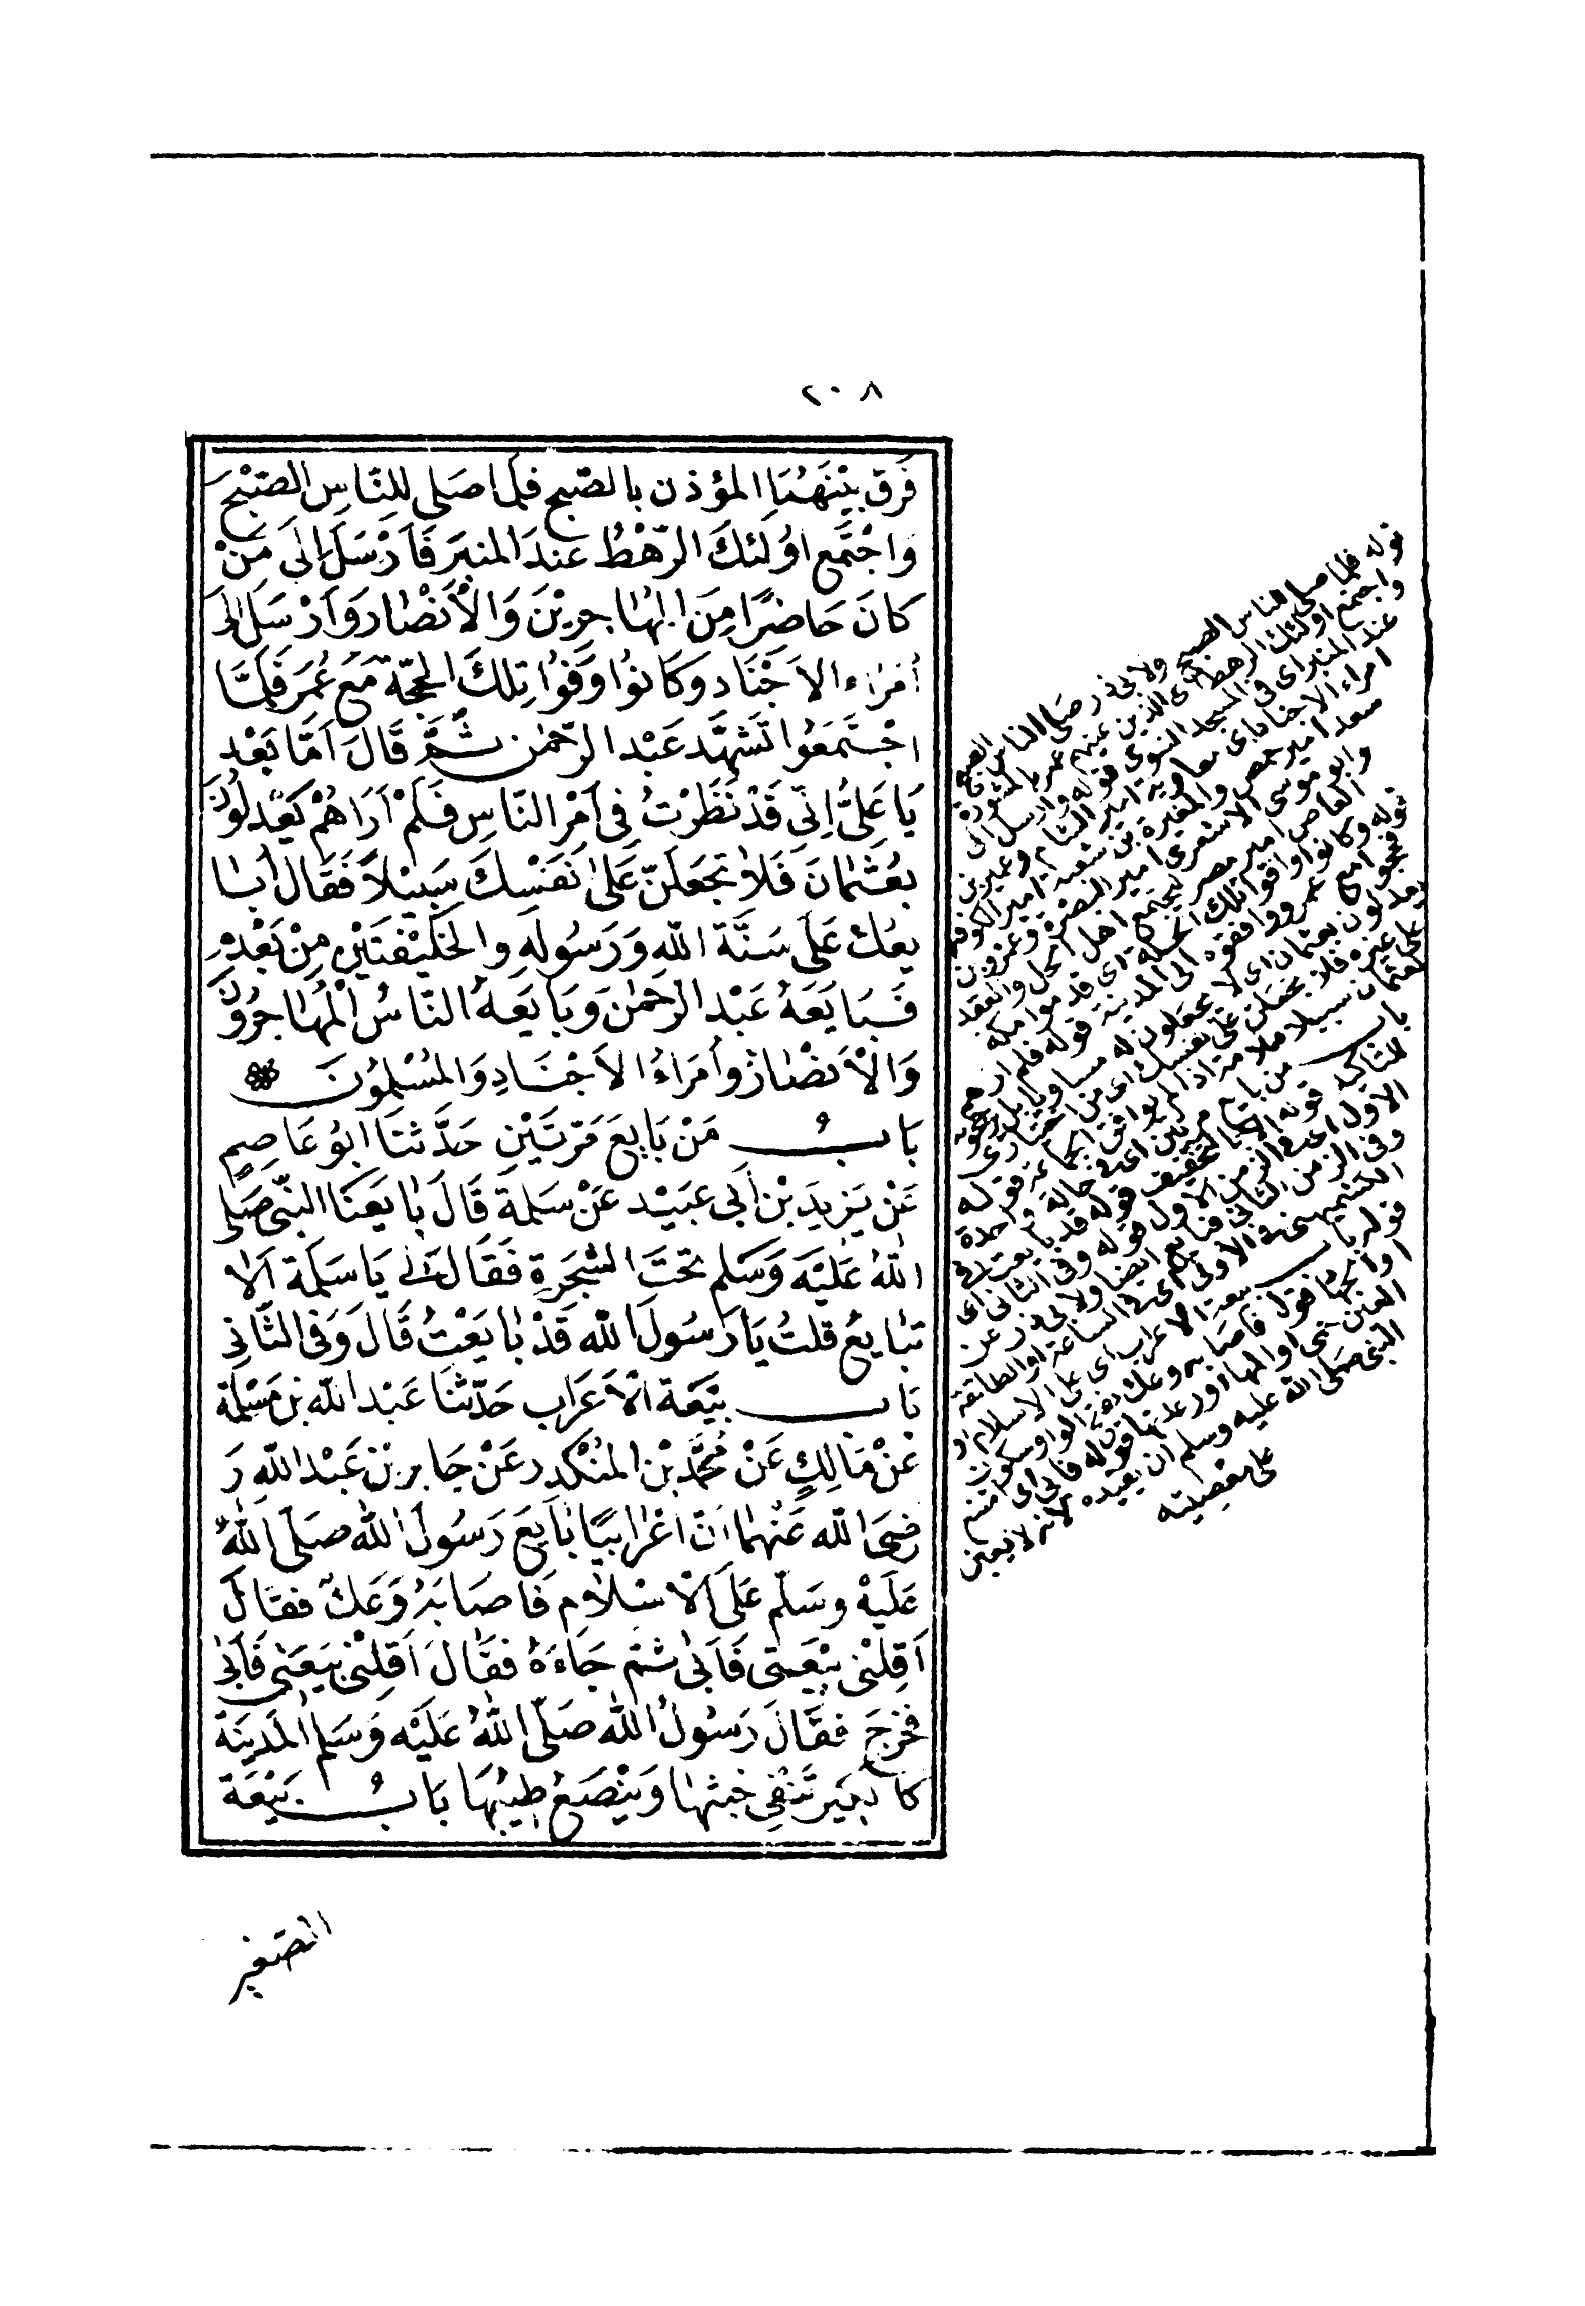 ٢٠٨
فَرَّقَ بَيْنَهُمَا المؤذن بالصّبح فلما صلى للنَّاسِ الصّبْحَ
وَاجْتَمَع اوُلَئكَ الرّهْطُ عندَ المنبَرِ فَاَرْسَلَ اِلَى مَنْ
كَانَ حَاضِرًا مِنَ المُهاجِرِيْنَ وَالْأَنْصَار وَاَرْسَلَ اِلَى
أُمَرَاء الاَجْنَاد وَكَانُوا وَافَوْا تِلكَ الحَجّة مَعَ عُمَرَ فَلَمَّا
اجْتَمَعُوا تَشَهَّد عَبْد الرّحمٰن ثُمَّ قَالَ اَمَّا بَعْد
يَا عَلِيُّ اِنِّي قَدْ نَظَرْتُ فِي اَمْرِ النّاسِ فَلَمْ اَرَاهُمْ يَعْدِلُوْنَ
بِعُثْمَانَ فَلَا تَجْعَلَنّ عَلَى نَفْسِكَ سَبِيْلاً فَقَالَ اُبَا
يِعُكَ عَلَى سُنَّة اللّهِ وَرَسُولِهِ والخَلِيْفَتَيْنِ مِنْ بَعْدِهِ
فَبَايَعَهُ عَبْد الرّحمٰن وَبَايَعَهُ النّاسُ المُهَاجِرُوْنَ
وَالْأَنْصَارُ وأُمَرَاءُ الاَجْنَادِ وَالمُسْلِمُونَ
بَابُ مَنْ بَايَعَ مَرَّتَيْنِ حَدَّثنَا ابُو عَاصِمٍ
عَنْ يَزِيدَ بْن أَبِي عبَيْد عَنْ سَلمة قَالَ بَايَعنَا النّبِيّ صَلى
اللهُ عَلَيْهِ وَسَلم تحْتَ الشَجَرَةِ فَقَالَ لِي يَا سَلَمَة اَلَا
تبَايعُ قلتُ يَا رَسُولَ اللّه قَدْ بَايَعْتُ قَالَ وَفِي الثَّانِي
بَاب بَيْعَة الْأَعرَابِ حَدّثنَا عَبْد اللّه بن مَسْلمَة
عَنْ مَالِكٍ عَنْ مُحَمَّد بْن المُنْكَدِر عَنْ جَابر بْن عَبْد اللّه رَ
ضِيَ اللّه عَنْهما اَنّ اعْرَابيًا بَايَعَ رَسُولَ اللّه صَلّى اللّهُ
عَلَيْهِ وسَلّم عَلَى الْاِسْلَام فَاصَابَهُ وَعَكٌ فقَالَ
اَقِلْنِي بَيْعَتِي فَاَبَى ثمّ جَاءَهُ فقَالَ اَقِلْنِي بَيْعَتِي فَاَبَى
فخرجَ فقَالَ رَسُولُ اللّه صَلّى اللّهُ عَلَيْه وَسَلم المَدِينَة
كَالكِيرِ تَنْفِي خبثهَا وَيَنْصَعُ طِيبُهَا بَابُ بَيْعَة
قوله فلما صلى الناس الصبح ولابي ذر صلى الناس الصبح
واجتمع اولئك الرهط اى الذين عينهم عمر للمشورة
عند المنبر اى فى المسجد النبوى قوله وارسل الى
امراء الاجناد اى معاوية امير الشام وعمير بن
سعد امير حمص والمغيرة بن شعبة امير الكوفة
وابو موسى الاشعرى امير البصرة وعمرو بن
العاص امير مصر ليجتمع اهل الحل والعقد
قوله وكانوا وافوا تلك الحجة اى قدموا مكة
فحجوا مع عمر ورافقوه الى المدينة قوله فلم ارهم
يعدلون بعثمان اى لا يجعلون له مساويا بل يرجحونه
على غيره فلا تجعلن على نفسك اى من اختيارى
لعثمان سبيلا ملامة اذا لم يوافق الجماعة قوله
باب من بايع مرتين اى فى حالة واحدة
للتاكيد قوله الا بالتخفيف قوله قد بايعت فى
الاول اى فى الزمن الاول قوله وفى الثانى اى
وفى الزمن الثانى فبايع ايضا ولابى ذر عن
الكشميهنى فى الاولى اى فى الساعة او الطائفة
قوله باب بيعة الاعراب اى على الاسلام او
او الجهاد قوله فاصابه وعك بفتح الواو وسكون
العين حمى او المها او رعدتها قوله فابى اى امتنع
النبى صلى الله عليه وسلم ان يعيده لانه لا يعين
على معصيته
الصغير